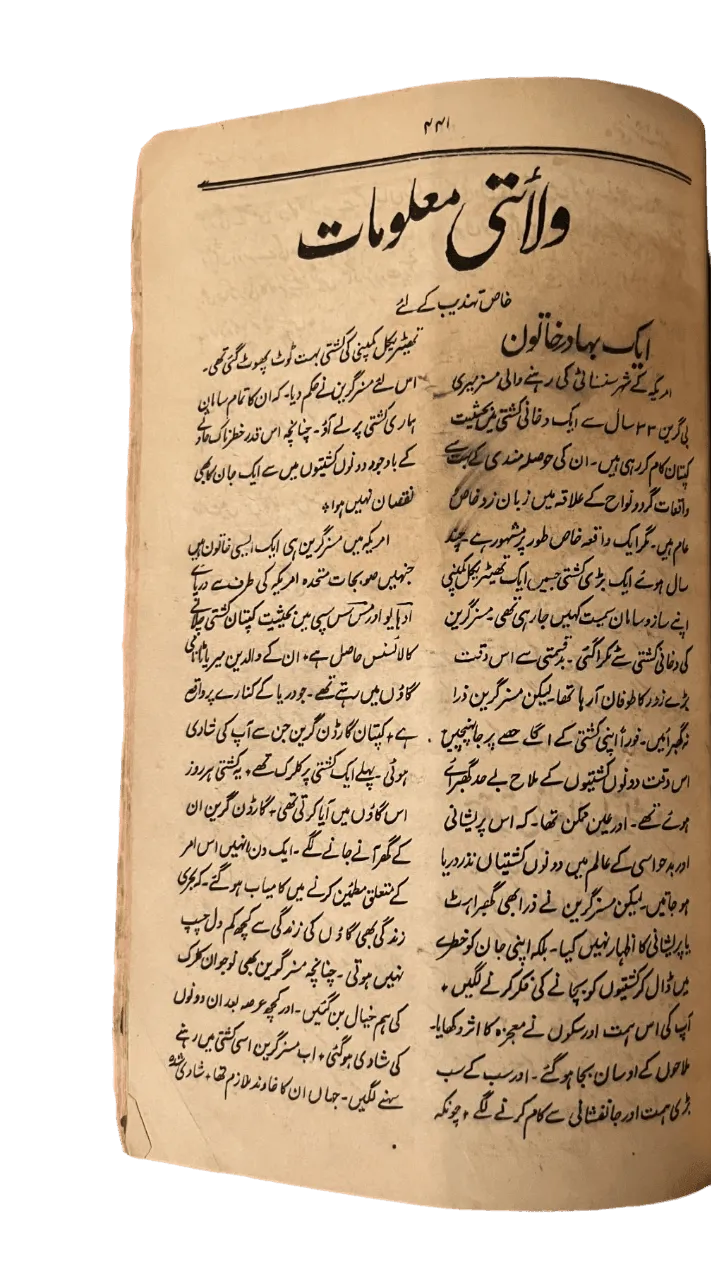 ۴۴۱
ولائتی معلومات
خاص تہذیب کے لئے
ایک بہادر خاتون
امریکہ کے شہر سنسناٹی کی رہنے والی مسز میری
بی گرین ۲۳ سال سے ایک دخانی کشتی میں بحیثیت
کپتان کام کر رہی ہیں۔ ان کی حوصلہ مندی کے بہت سے
واقعات گرد و نواح کے علاقہ میں زبان زد خاص
عام ہیں۔ مگر ایک واقعہ خاص طور پر مشہور ہے۔ چند
سال ہوئے ایک بڑی کشتی جسمیں ایک تھیٹریکل کمپنی
اپنے ساز و سامان سمیت کہیں جا رہی تھی۔ مسز گرین
کی دخانی کشتی سے ٹکرا گئی۔ بدقسمتی سے اس وقت
بڑے زور کا طوفان آ رہا تھا۔ لیکن مسز گرین ذرا
نہ گھبرائیں۔ فوراً اپنی کشتی کے اگلے حصے پر جا پہنچیں
اس وقت دونوں کشتیوں کے ملاح بے حد گھبرائے
ہوئے تھے۔ اور عین ممکن تھا۔ کہ اس پریشانی
اور بدحواسی کے عالم میں دونوں کشتیاں نذر دریا
ہو جاتیں۔ لیکن مسز گرین نے ذرا بھی گھبراہٹ
یا پریشانی کا اظہار نہیں کیا۔ بلکہ اپنی جان کو خطرے
میں ڈال کر کشتیوں کو بچانے کی فکر کرنے لگیں۔
آپ کی اس ہمت اور سکون نے معجزہ کا اثر دکھایا۔
ملاحوں کے اوسان بجا ہو گئے۔ اور سب کے سب
بڑی ہمت اور جانفشانی سے کام کرنے لگے۔ چونکہ
تھیٹریکل کمپنی کی کشتی بہت ٹوٹ پھوٹ گئی تھی۔
اس لئے مسز گرین نے حکم دیا۔ کہ ان کا تمام سامان
ہماری کشتی پر لے آؤ۔ چنانچہ اس قدر خطرناک حادثے
کے باوجود دونوں کشتیوں میں سے ایک جان کا بھی
نقصان نہیں ہوا۔
امریکہ میں مسز گرین ہی ایک ایسی خاتون ہیں
جنہیں صوبجات متحدہ امریکہ کی طرف سے دریائے
اوہایو اور مس سس سپی میں بحیثیت کپتان کشتی چلانے
کا لائسنس حاصل ہے۔ ان کے والدین میریاٹا نامی
گاؤں میں رہتے تھے۔ جو دریا کے کنارے پر واقع
ہے۔ کپتان گارڈن گرین جن سے آپ کی شادی
ہوئی۔ پہلے ایک کشتی پر کلرک تھے۔ یہ کشتی ہر روز
اس گاؤں میں آیا کرتی تھی۔ گارڈن گرین ان
کے گھر آنے جانے لگے۔ ایک دن انہیں اس امر
کے متعلق مطمئن کرنے میں کامیاب ہو گئے۔ کہ بحری
زندگی بھی گاؤں کی زندگی سے کچھ کم دل چسپ
نہیں ہوتی۔ چنانچہ مسز گرین بھی نوجوان کلرک
کی ہم خیال بن گئیں۔ اور کچھ عرصہ بعد ان دونوں
کی شادی ہو گئی۔ اب مسز گرین اسی کشتی میں رہنے
سہنے لگیں۔ جہاں ان کا خاوند ملازم تھا۔ شادی شدہ